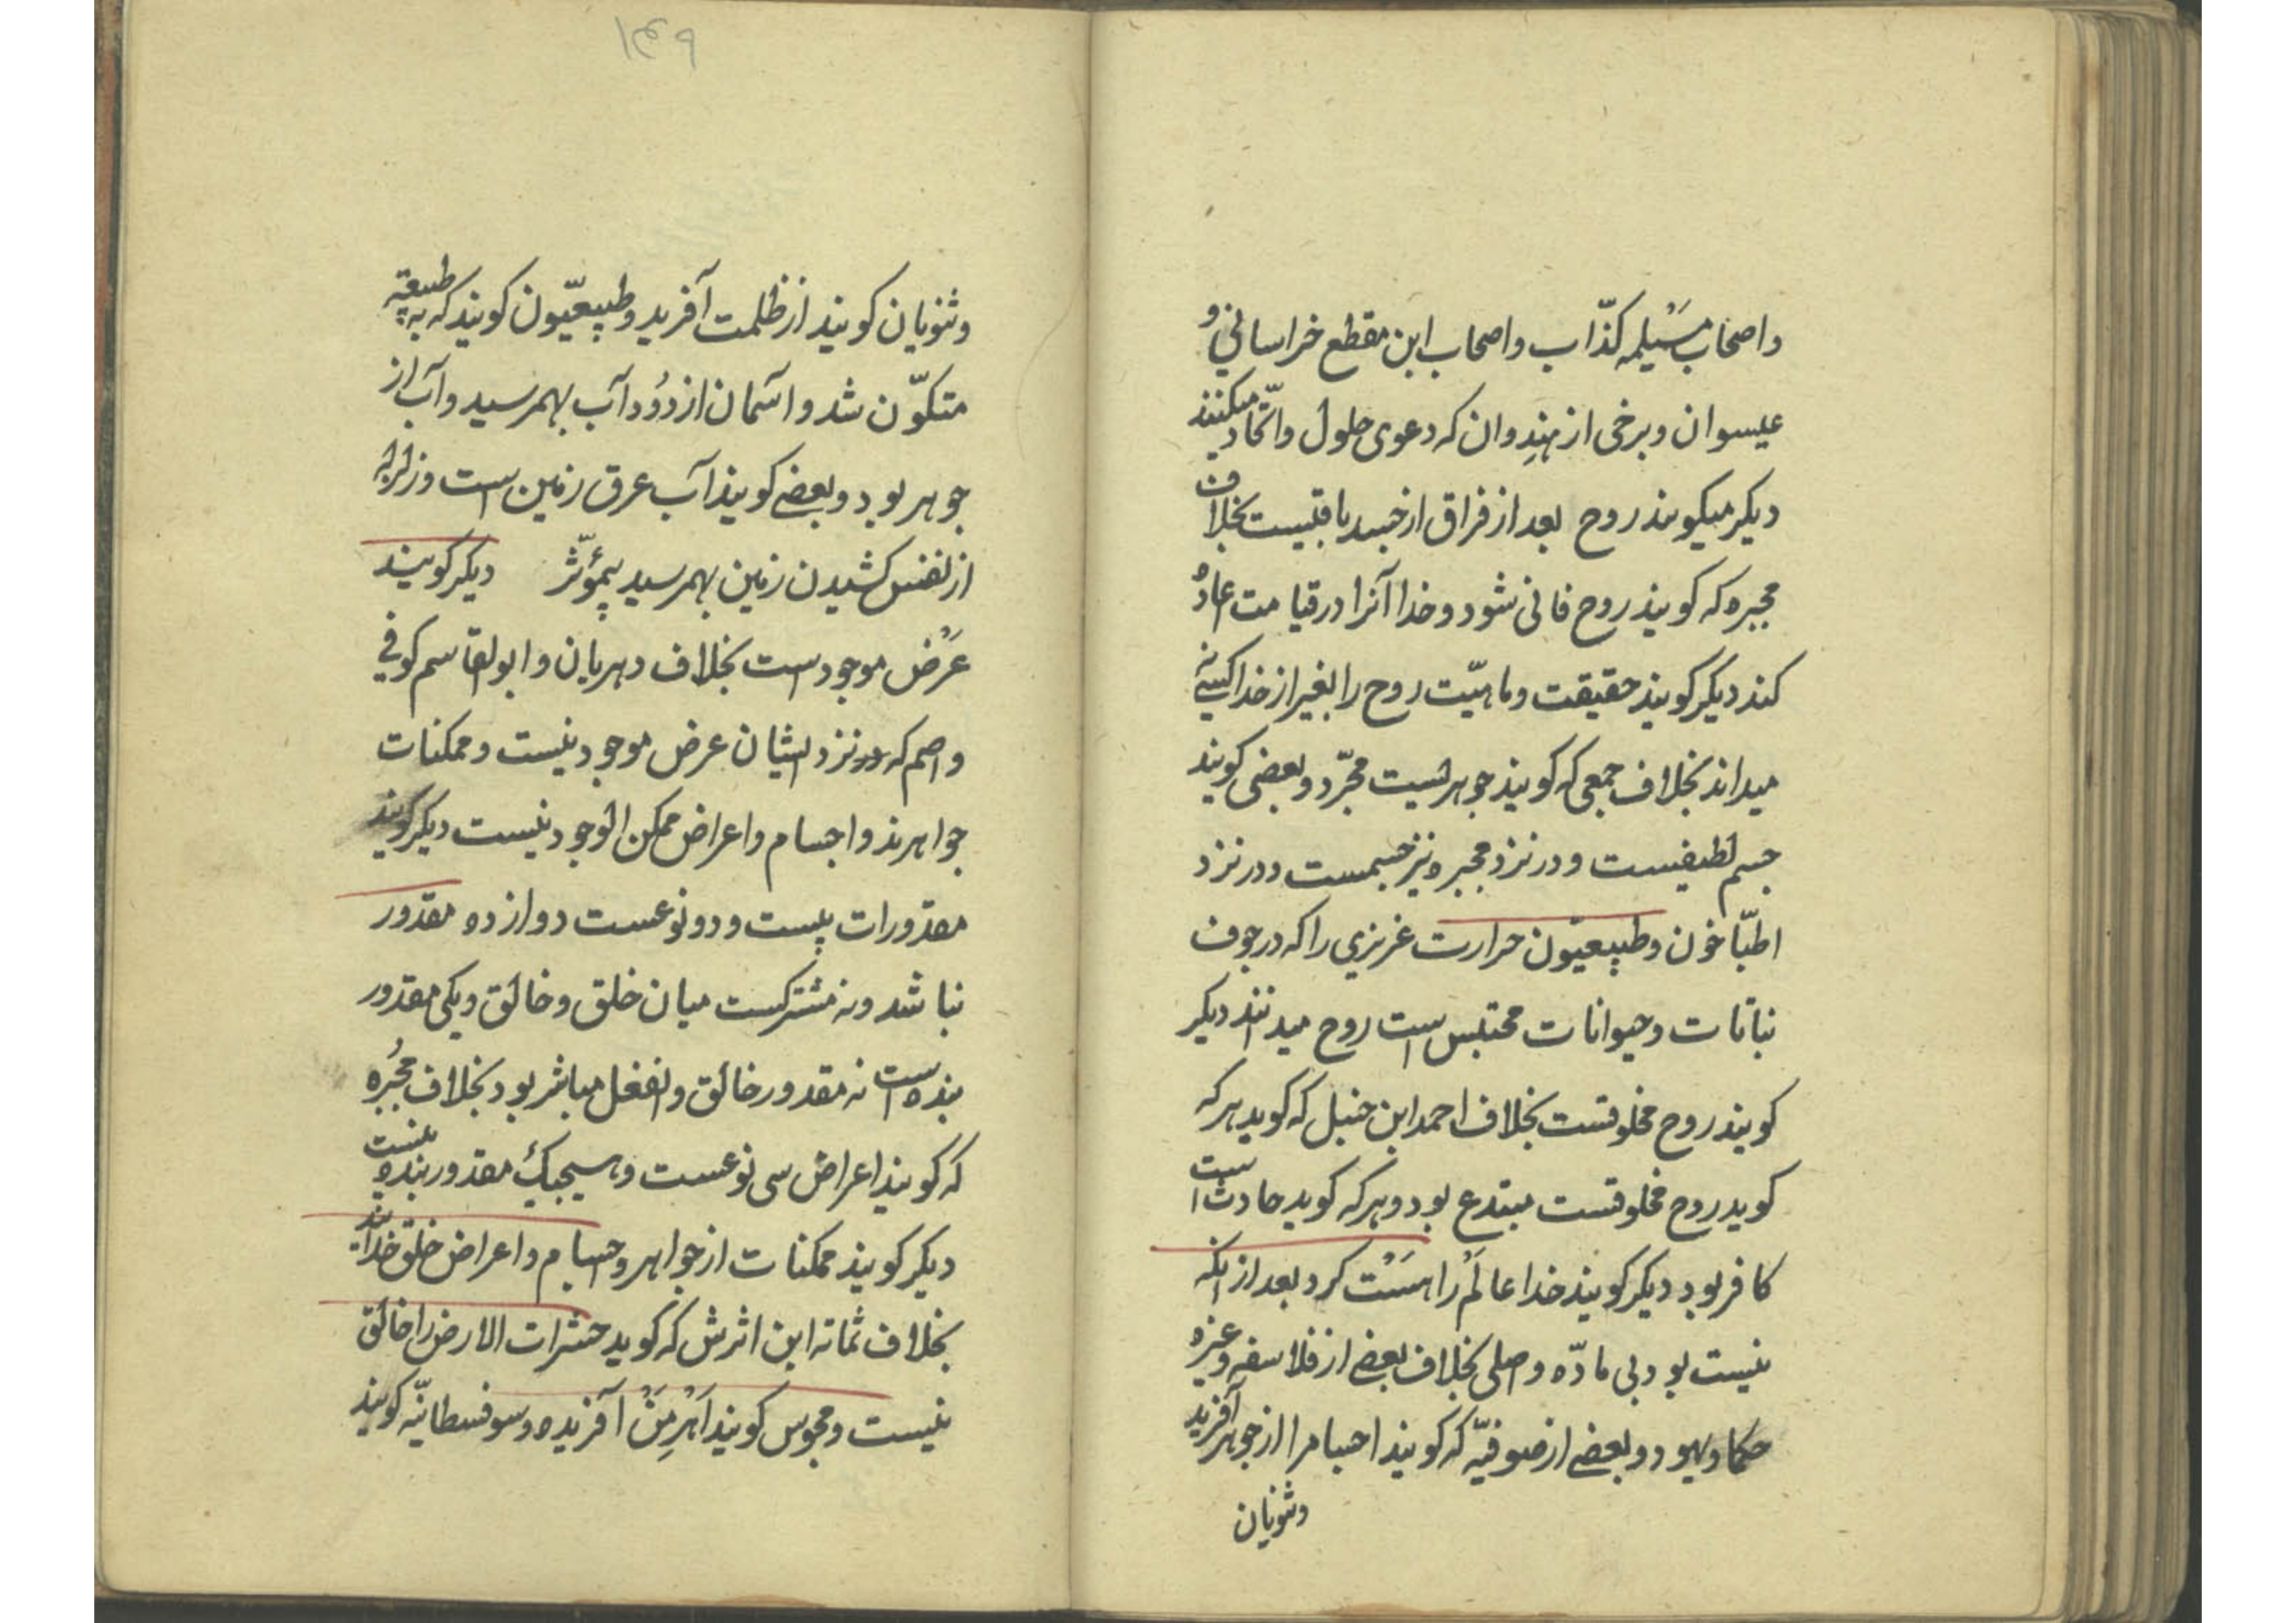 واصحاب مسَیْلمه کذّاب واصحاب ابن مقطع خراسانی و
عیسوان وبرخی از هندوان که دعوی حلول واتّحاد میکنند
دیکر میکویند روح بعد از فراق از جسد باقیست بخلاف
مجبره که کویند روح فانی شود وخدا آنرا در قیامت اعاده
کند دیکر کویند حقیقت وماهیّت روح را بغیر از خدا کسی نه
میداند بخلاف جمعی که کویند جوهریست مجرّد وبعضی کویند
جسم لطیفیست ودر نزد مجبره نیز جسمست ودر نزد
اطبّا خون وطبیعیّون حرارت غریزی را که در جوف
نباتات وحیوانات محتبس است روح میدانند دیکر
کویند روح مخلوقست بخلاف احمد ابن حنبل که کوید هر که
کوید روح مخلوقست مبتدع بود وهر که کوید حادث است
کافر بود دیکر کویند خدا عالَمْ را هسَتْ کرد بعد از انکه
نیست بود بی مادّه واصلی بخلاف بعضی از فلاسفه وغیره
حکما ویهود وبعضی از صوفیّه که کویند اجسام را از جوهر آفرید
وثنویان
۱۴۹
وثنویان کویند از ظلمت آفرید وطبیعیّون کویند که به طبیعته
متکوّن شد واسمان از دُود آب بهمرسید وآب از
جوهر بود وبعضی کویند آب عرق زمین است وزلزله
از نفس کشیدن زمین بهمرسید بیمؤثّر دیکر کویند
عَرَض موجودست بخلاف دهریان وابو القاسم کوفی
واصم که در نزد ایشان عرض موجود نیست وممکنات
جواهرند واجسام واعراض ممکن الوجود نیست دیکر کویند
مقدورات بیست ودو نوعست دوازده مقدور
نباشد ونه مشترکست میان خلق وخالق ویکی مقدور
بنده است نه مقدور خالق وانفعل مباشر بود بخلاف مجُبره
که کویند اعراض سی نوعست وهیچیک مقدور بنده نیست
دیکر کویند ممکنات از جواهر واجسام واعراض خلق خدایند
بخلاف ثمانه ابن اثرش که کوید حشرات الارض را خالق
نیست ومجوس کویند اَهْرِمَنْ آفریده وسوفسطائیّه کویند